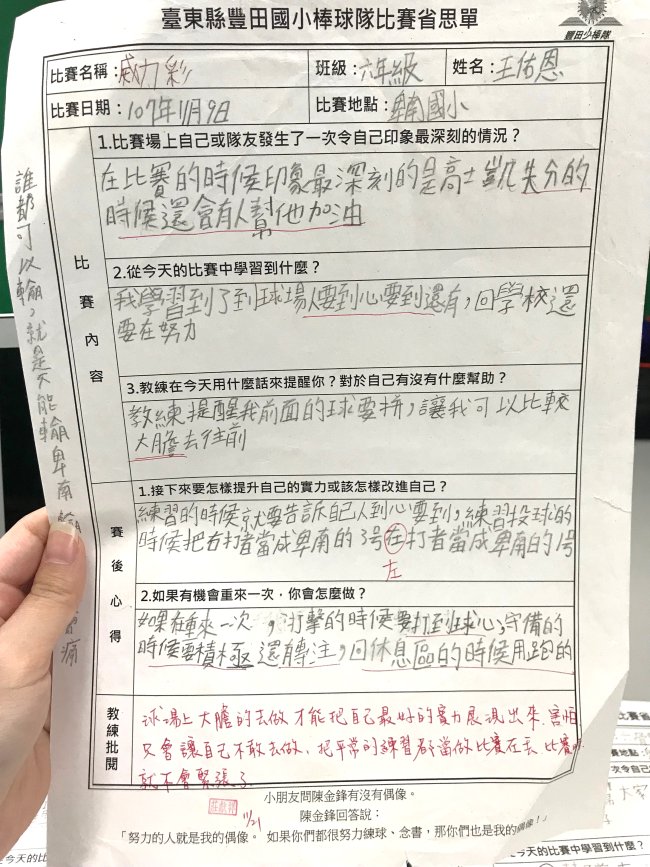 臺東縣豐田國小棒球隊比賽省思單
豐田少棒隊
比賽名稱：威力彩
班級：六年級
姓名：王佑恩
比賽日期：107年11月9日
比賽地點：卑南國小
比賽內容
1.比賽場上自己或隊友發生了一次令自己印象最深刻的情況？
在比賽的時候印象最深刻的是高士凱失分的
時候還會有人幫他加油
2.從今天的比賽中學習到什麼？
我學習到了到球場人要到心要到還有，回學校還
要在努力
3.教練在今天用什麼話來提醒你？對於自己有沒有什麼幫助？
教練提醒我前面的球要拼，讓我可以比較
大膽去往前
賽後心得
1.接下來要怎樣提升自己的實力或該怎樣改進自己？
練習的時候就要告訴自己人到心要到，練習投球的
時候把右打者當成卑南的3號在打者當成卑南的1號
左
2.如果有機會重來一次，你會怎麼做？
如果在重來一次，打擊的時候要打到球心，守備的
時候要積極還有專注，回休息區的時候用跑的
教練批閱
球場上大膽的去做才能把自己最好的實力展現出來 害怕
只會讓自己不敢去做、把平常的練習都當做比賽在丟 比賽時
就不會緊張了
11/21
小朋友問陳金鋒有沒有偶像。
陳金鋒回答說：
「努力的人就是我的偶像。 如果你們都很努力練球、念書，那你們也是我的偶像！」
誰都可以輸，就是不能輸卑南
痛